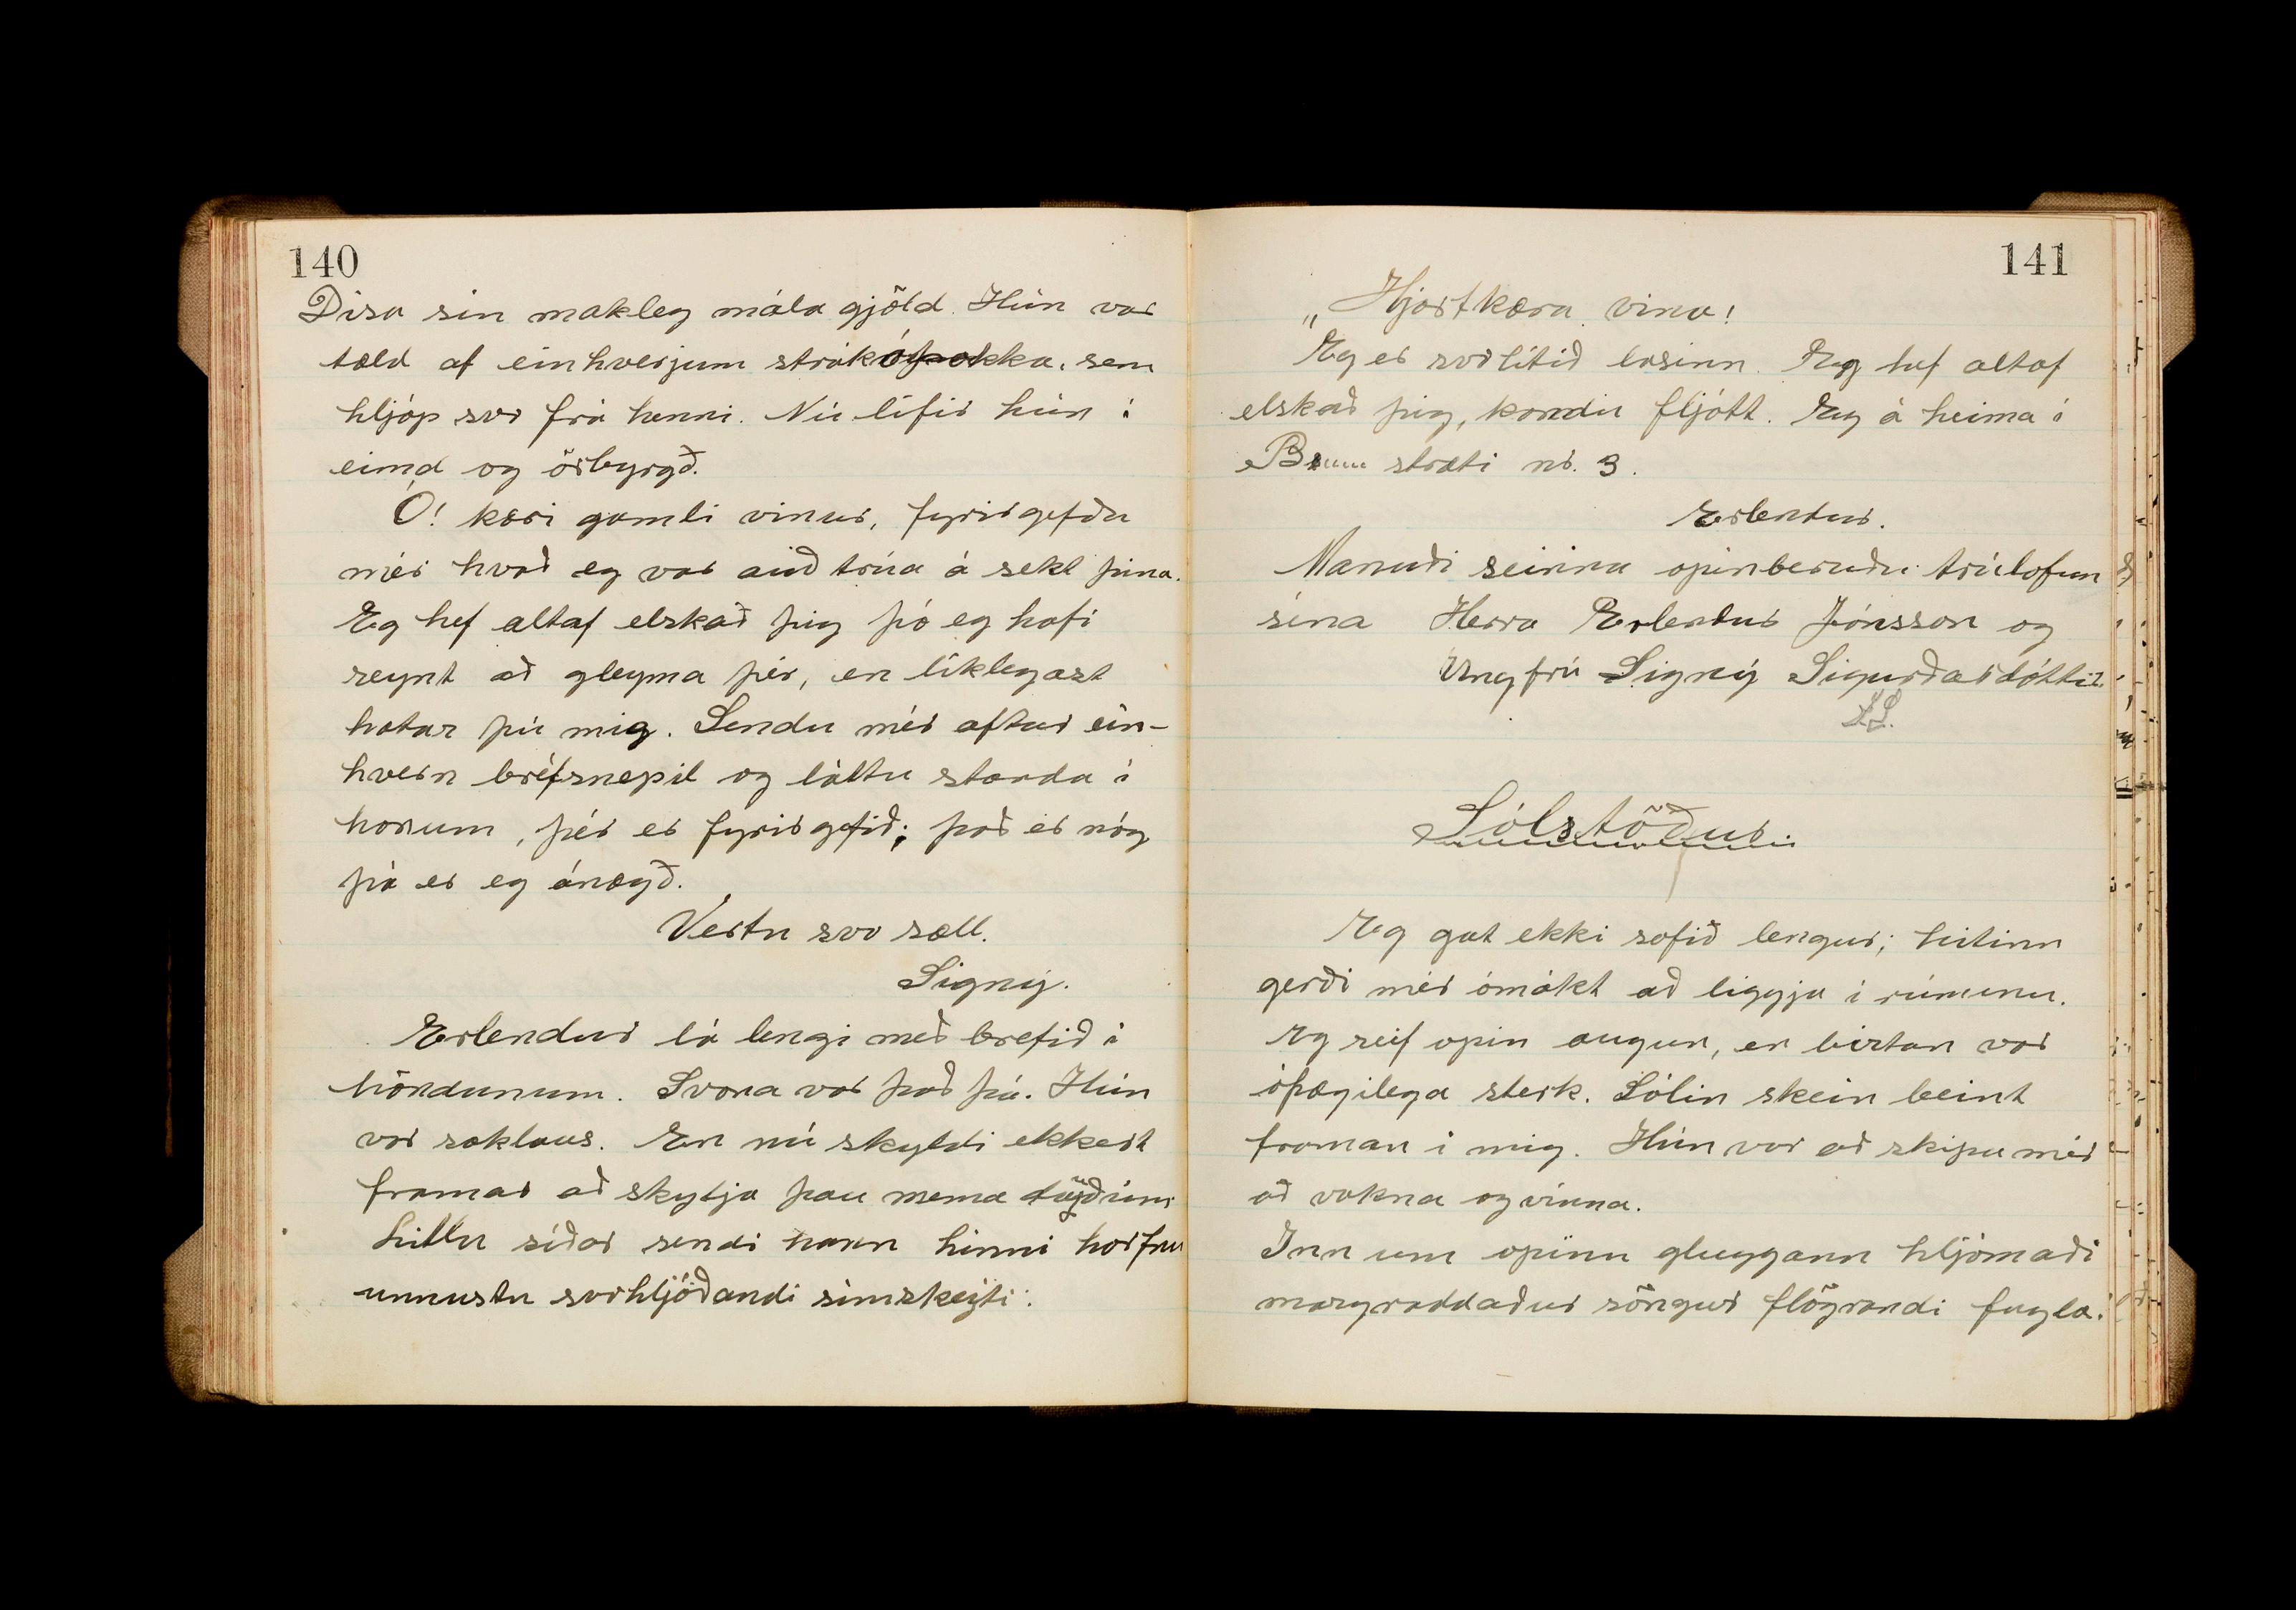 140
Dísa sín makleg mála gjöld. Hún var
tæld af einhverjum strákópokka, sem
hljóp svo frá henni. Nú lifir hún í
eimd og örbyrgð.
Ó! kæri gamli vinur, fyrirgefðu
mér hvað eg var auð trúa á sekt þína.
Eg hef altaf elskað þig þó eg hafi
reynt að gleyma þér, en líklegast
hatar þú mig. Sendu mér aftur ein-
hvern bréfsnepil og láttu standa í
honum, þér er fyrirgefið; það er nóg
þá er eg ánægð.
Vertu svo sæll.
Signý.
Erlendur lá lengi með brefið í
höndunum. Svona var það þá. Hún
var saklaus. En nú skyldi ekkert
framar að skylja þau nema dauðinn
Littlu síðar sendi hann hinni horfnu
unnustu svohljóðandi símskeyti:
141
„Hjartkæra vina!
Eg er svolítið lasinn. Eg hef altaf
elskað þig, komdu fljótt. Eg á heima í
stræti nr. 3.
Erlendur.
Manuði seinna opinberuðu trúlofun
sína Herra Erlendur Jónsson og
Ungfrú Signý Sigurðardóttir.
S.S.
Sólstöður.
Eg gat ekki sofið lengur; hitinn
gerði mér ómákt að liggja í rúminu.
Eg reif opin augun, en birtan var
óþægilega sterk. Sólin skein beint
framan í mig. Hún var að skipa mér
að vakna og vinna.
Inn um opinn gluggann hljómaði
margraddaður söngur flögrandi fugla.